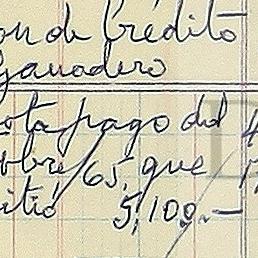 on de Crédito
Ganadero
ota pago del 4
bre/65, que
itió 5,100.—